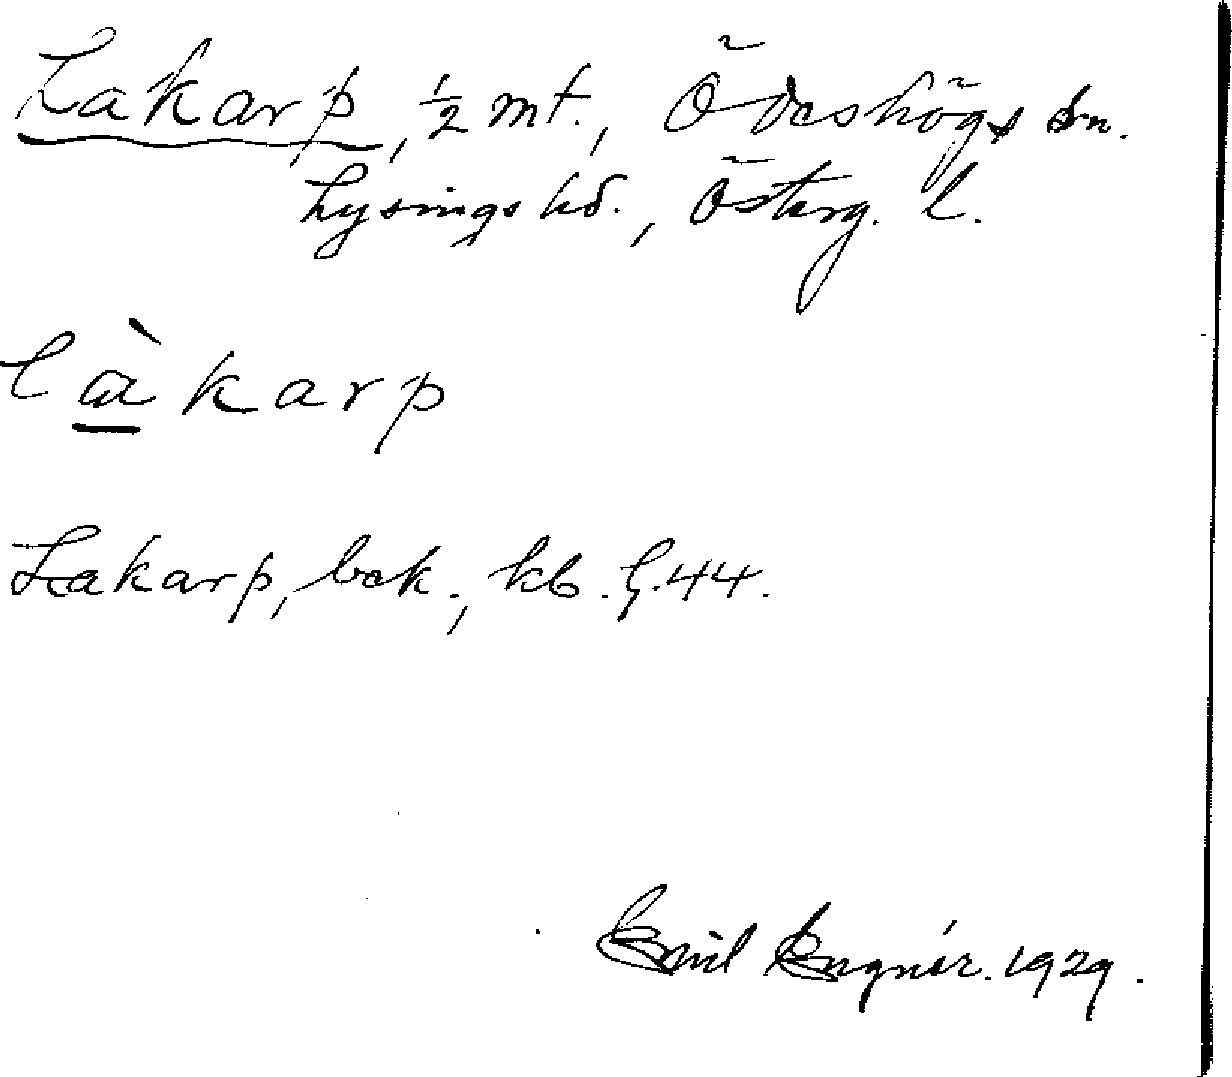 Lakarp, ½ mt., Ödeshögs sn.
Lysings hd., Österg. l.
làkarp
Lakarp, bek., kb. G.44.
Emil Engnér. 1929.